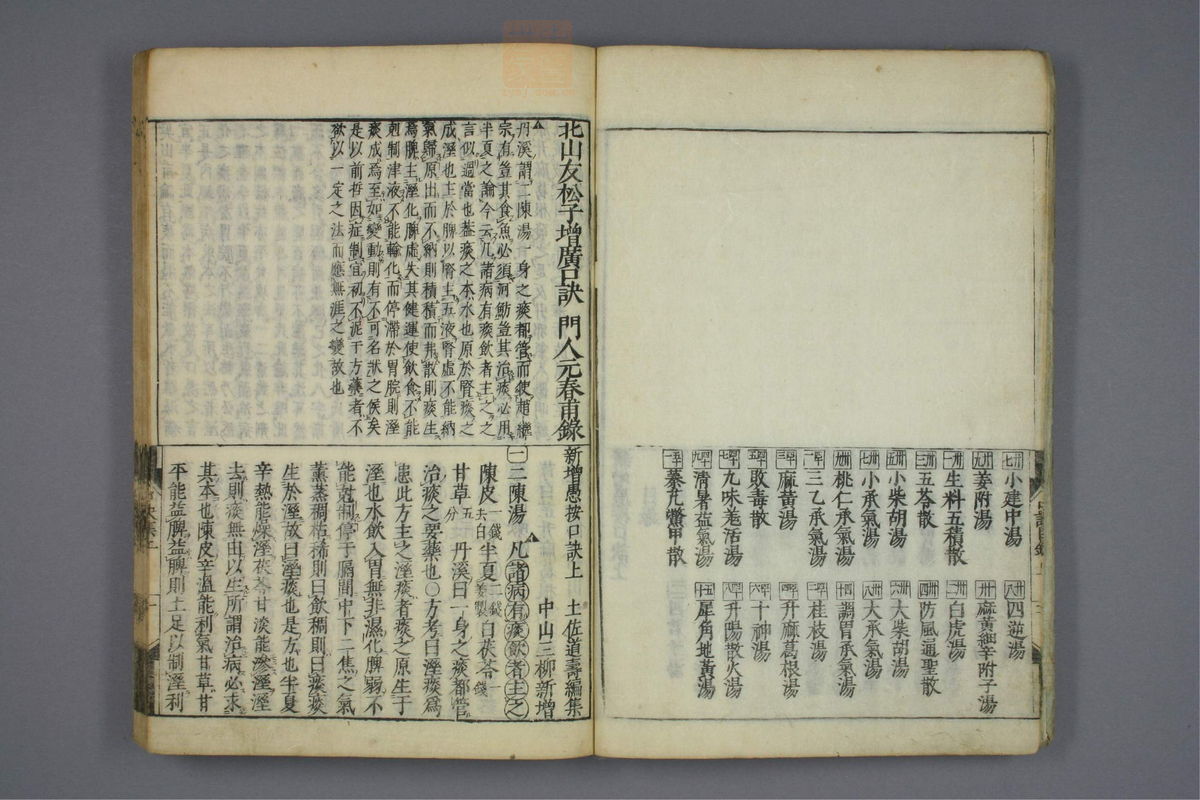 小建中湯
四逆湯
姜附湯
麻黃細辛附子湯
生料五積散
白虎湯
五苓散
防風通聖散
小柴胡湯
大柴胡湯
小承氣湯
大承氣湯
桃仁承氣湯
調胃承氣湯
三乙承氣湯
桂枝湯
麻黃湯
升麻葛根湯
敗毒散
十神湯
九味羗活湯
升陽散火湯
清暑益氣湯
犀角地黃湯
秦艽鱉甲散
北山友松子增廣口訣 門人元春甫錄
丹溪謂二陳湯一身之痰都管而使趙
宗有豈其食魚必須河魴豈其治痰必用
半夏之論今云凡諸病有痰飲者主之之
言似過當也蓋痰之本水也原於腎痰之
成溼也主於脾以腎主五液腎虛不能納
氣歸原出而不納則積積而弗散則痰生
焉脾主溼化脾虛失其健運使飲食不能
尅制津液不能輸化而停滯於胃脘則溼
痰成焉至如變動則有不可名狀之候矣
是以前哲因症制宜初不泥于方藥者不
欲以一定之法而應無涯之變故也
新增愚按口訣上 土佐道壽編集
中山三柳新增
一 二陳湯 凡諸病有痰飲者主之
陳皮一錢去白 半夏二錢薑製 白茯苓一錢
甘草五分 丹溪曰一身之痰都管
治痰之要藥也○方考曰溼痰爲
患此方主之溼痰者痰之原生于
溼也水飲入胃無非濕化脾弱不
能尅制停于膈間中下二焦之氣
薰蒸稠粘稀則曰飲稠則曰痰痰
生於溼故曰溼痰也是方也半夏
辛熱能燥溼茯苓甘淡能滲溼溼
去則痰無由以生所謂治病必求
其本也陳皮辛溫能利氣甘草甘
平能益脾益脾則土足以制溼利